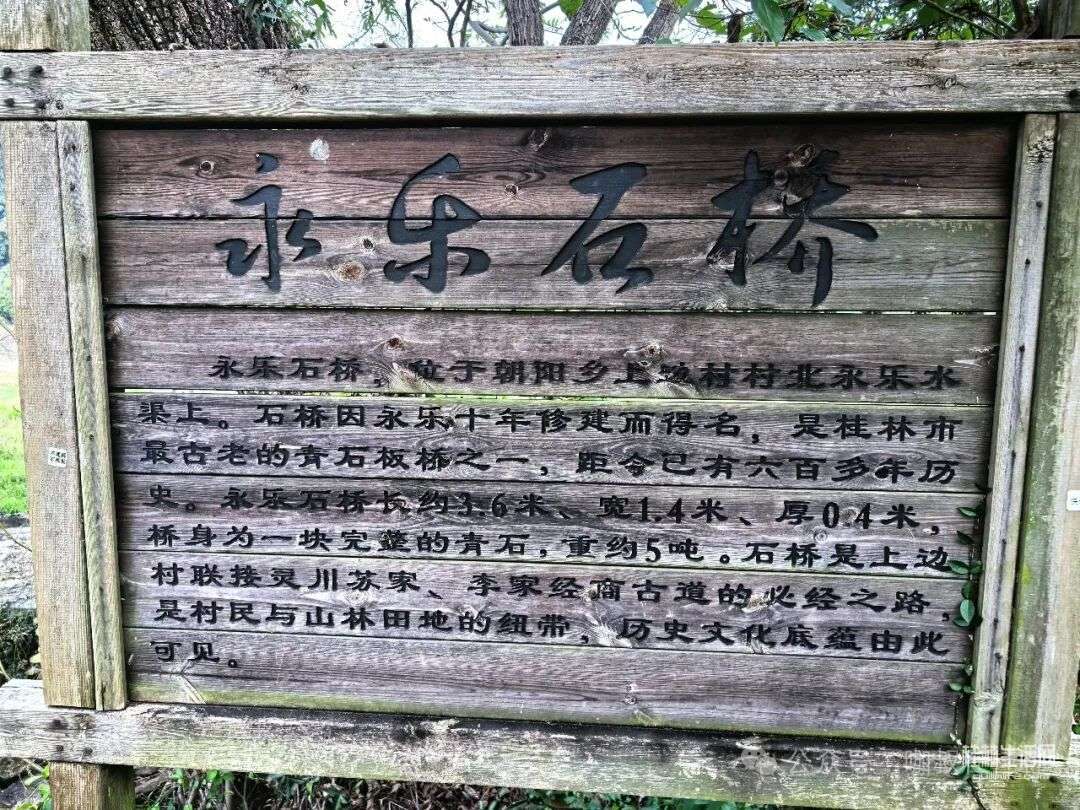 永乐石桥
永乐石桥，位于朝阳乡上边村村北永乐水
渠上。石桥因永乐十年修建而得名，是桂林市
最古老的青石板桥之一，距今已有六百多年历
史。永乐石桥长约3.6米、宽1.4米、厚0.4米，
桥身为一块完整的青石，重约5吨。石桥是上边
村联接灵川苏家、李家经商古道的必经之路，
是村民与山林田地的纽带，历史文化底蕴由此
可见。
公众号
桂林生活网